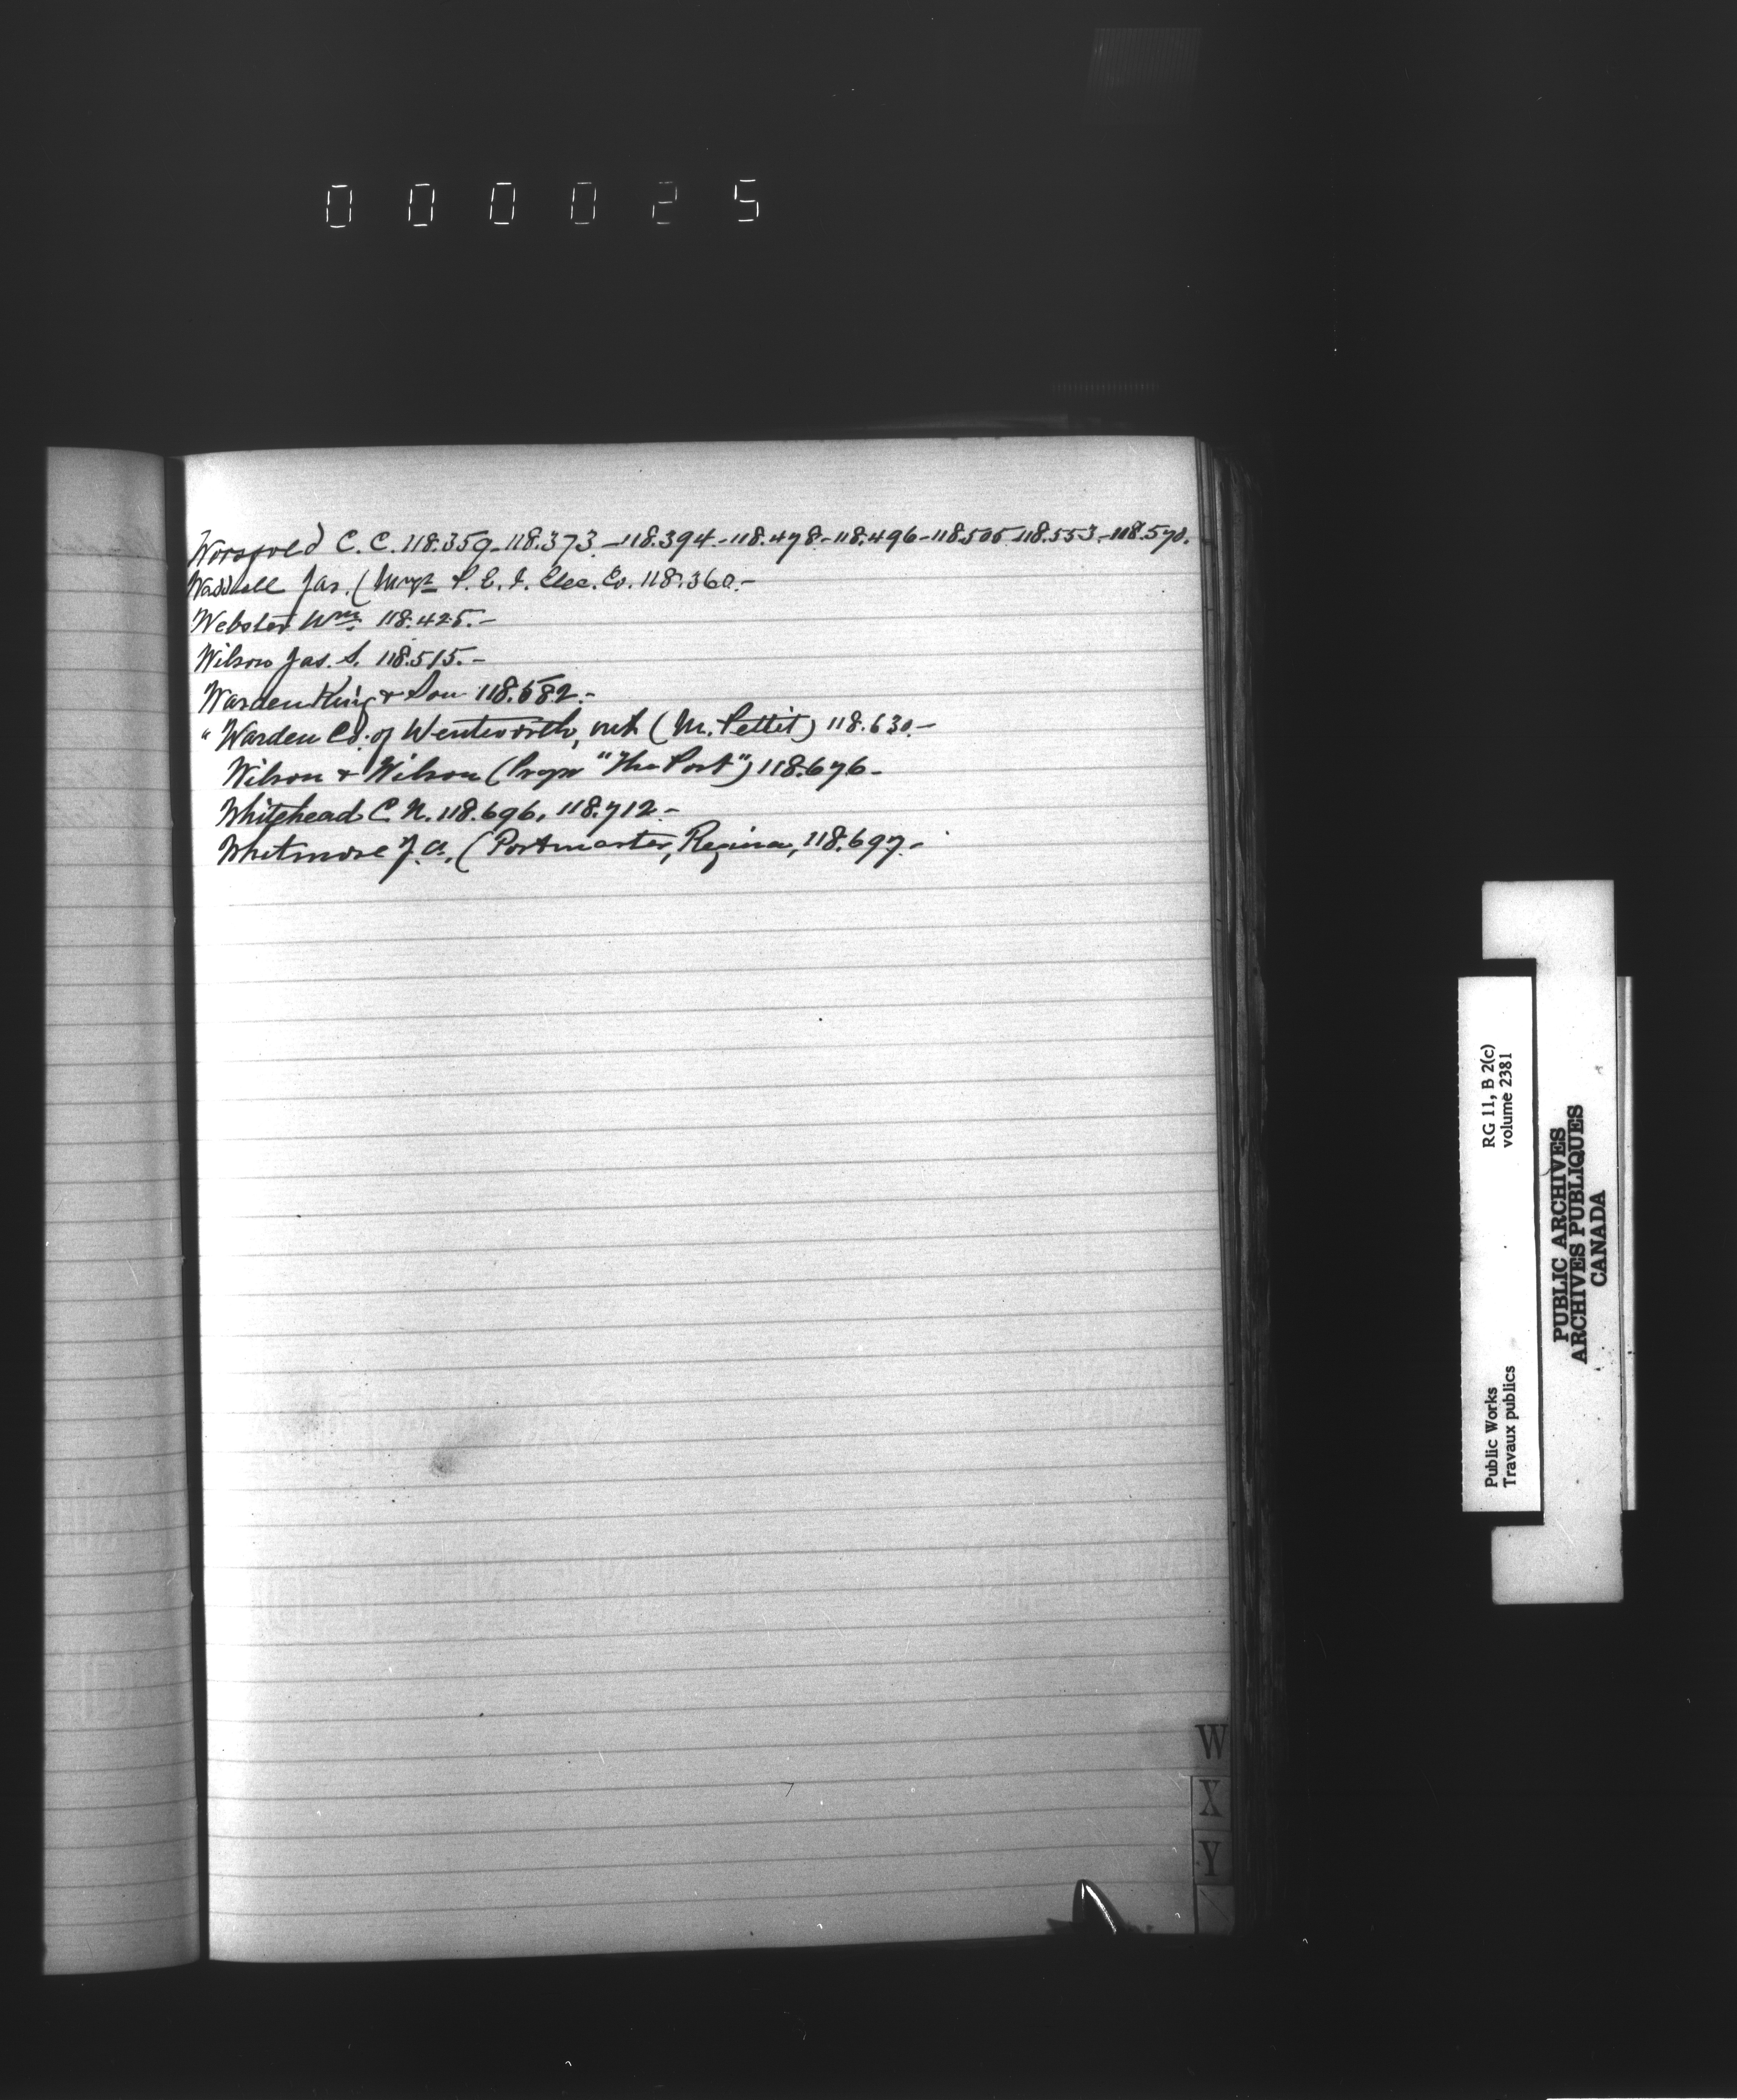 000025
Worsfold C. C. 118.359-118.373.-118.394.-118.478.-118.496-118.505-118.553.-118.570.
Waddell Jas. (Mngr P. E. I. Elec. Co. 118.360.-
Webster Wm. 118.425.-
Wilson Jas. S. 118.515.-
Warden King & Son 118.582.-
" Warden Co. of Wentworth, Ont (M. Pettit) 118.630.-
Wilson & Wilson (Props "The Post") 118.676-
Whitehead C. N. 118.696, 118.712-
Whitmore J. A, (Postmaster, Regina, 118.697.-
W
X
Y
Public Works
Travaux publics
RG 11, B 2(c)
volume 2381
PUBLIC ARCHIVES
ARCHIVES PUBLIQUES
CANADA